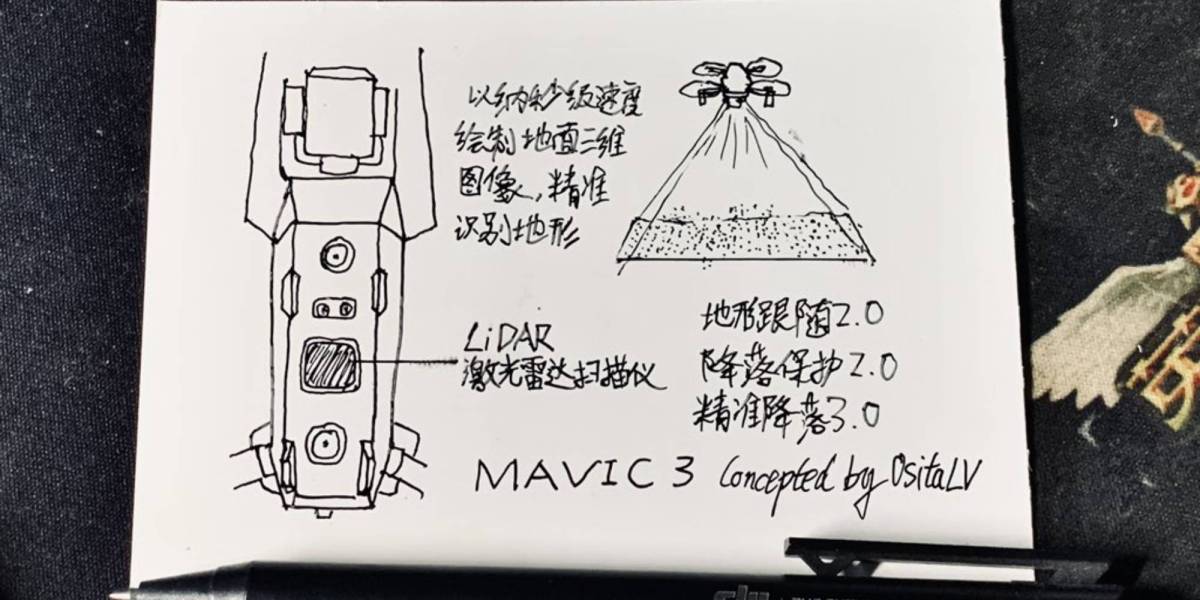 以纳秒级速度
绘制地面三维
图像，精准
识别地形
LiDAR
激光雷达扫描仪
地形跟随2.0
降落保护2.0
精准降落3.0
MAVIC 3 Concepted by OsitaLV
dji